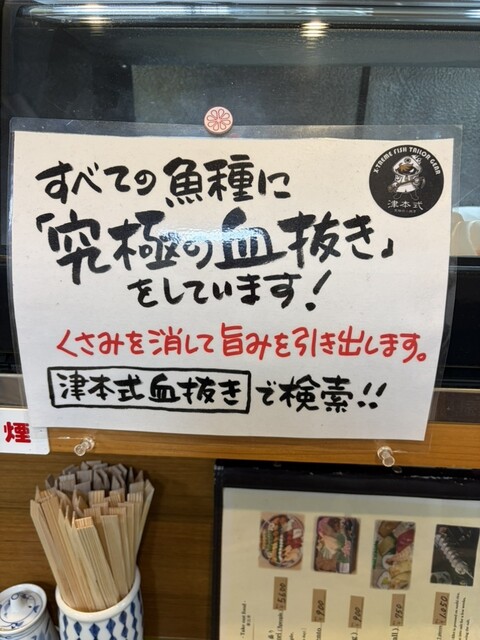 すべての魚種に
「究極の血抜き」
をしています!
くさみを消して旨みを引き出します。
津本式血抜きで検索!!
X-TREME FISH TAILOR GEAR
津本式
煙
- Take out food -
5,400
800
900
750
1,050